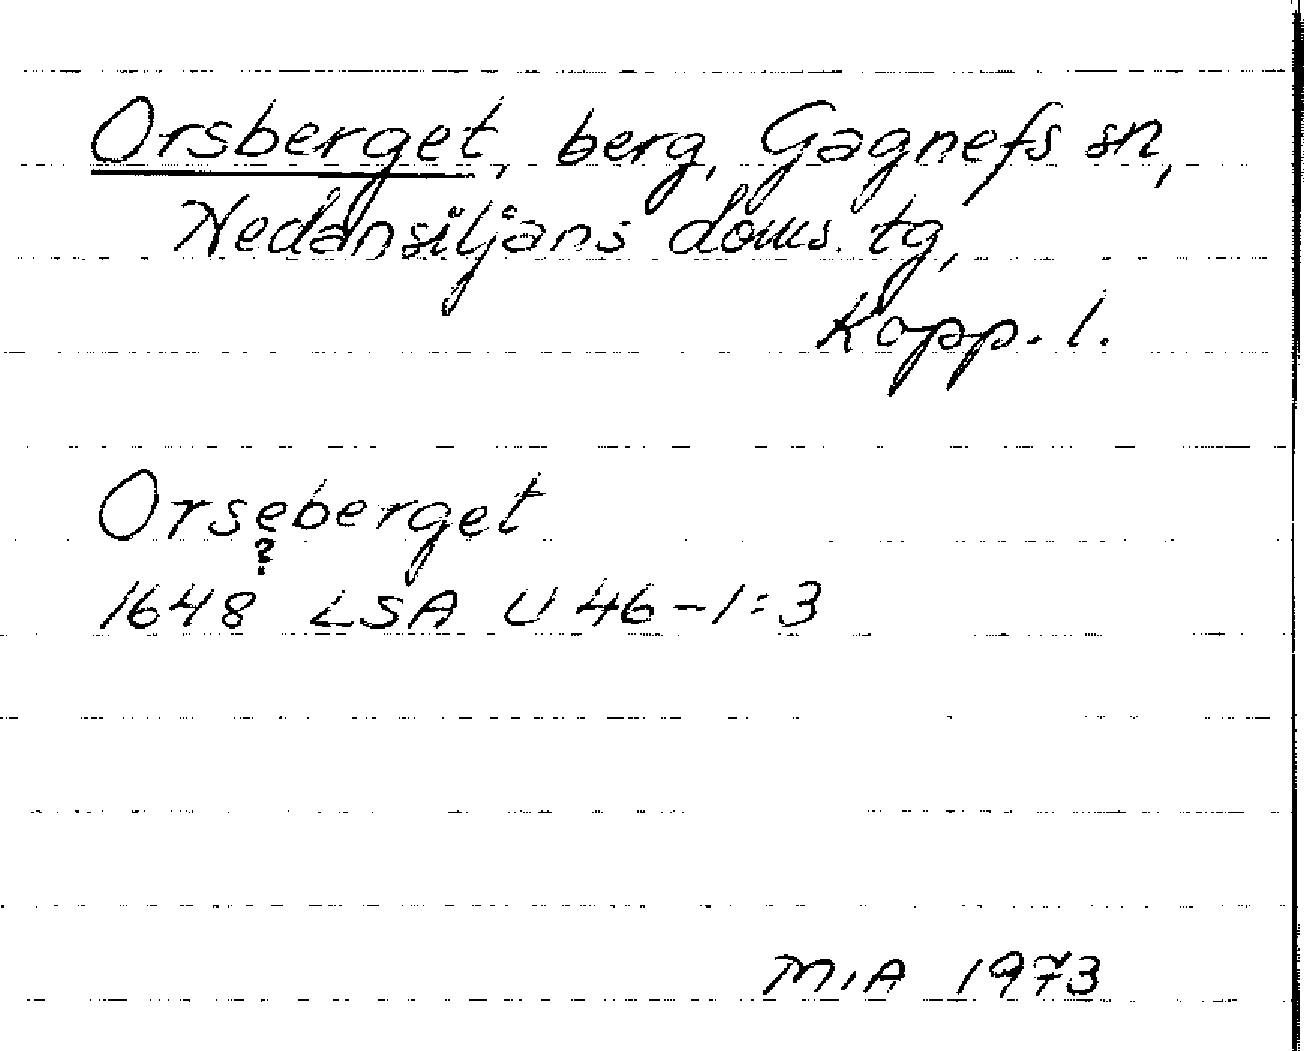 Orsberget, berg, Gagnefs sn,
Nedansiljans doms. tg,
Kopp. l.
Orseberget
?
1648 LSA U 46-1:3
M.A 1973